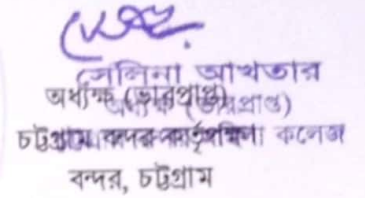 সেলিনা আখতার
অধ্যক্ষ (ভারপ্রাপ্ত)
অধ্যক্ষ (ভারপ্রাপ্ত)
চট্টগ্রাম বন্দর কর্তৃপক্ষ কলেজ
বন্দর, চট্টগ্রাম